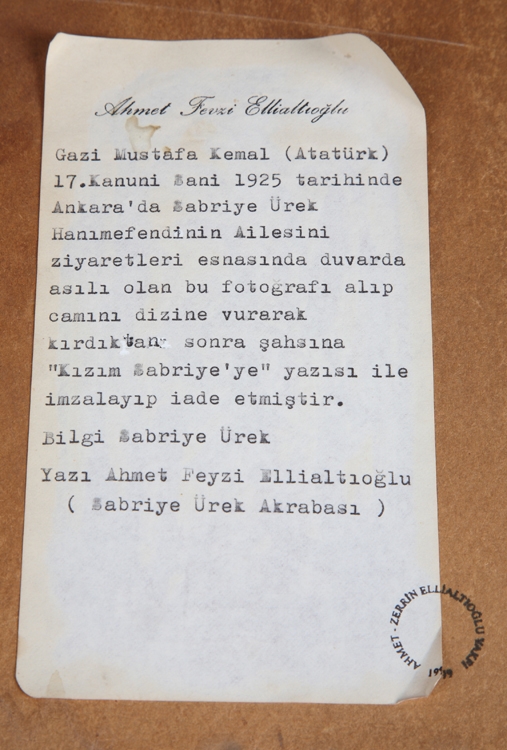 Ahmet Fevzi Ellialtıoğlu
Gazi Mustafa Kemal (Atatürk)
17.Kanuni Sani 1925 tarihinde
Ankara'da Sabriye Ürek
Hanımefendinin Ailesini
ziyaretleri esnasında duvarda
asılı olan bu fotoğrafı alıp
camını dizine vurarak
kırdıktan sonra şahsına
"Kızım Sabriye'ye" yazısı ile
imzalayıp iade etmiştir.
Bilgi Sabriye Ürek
Yazı Ahmet Feyzi Ellialtıoğlu
( Sabriye Ürek Akrabası )
AHMET - ZERRİN ELLİALTIOĞLU VAKFI